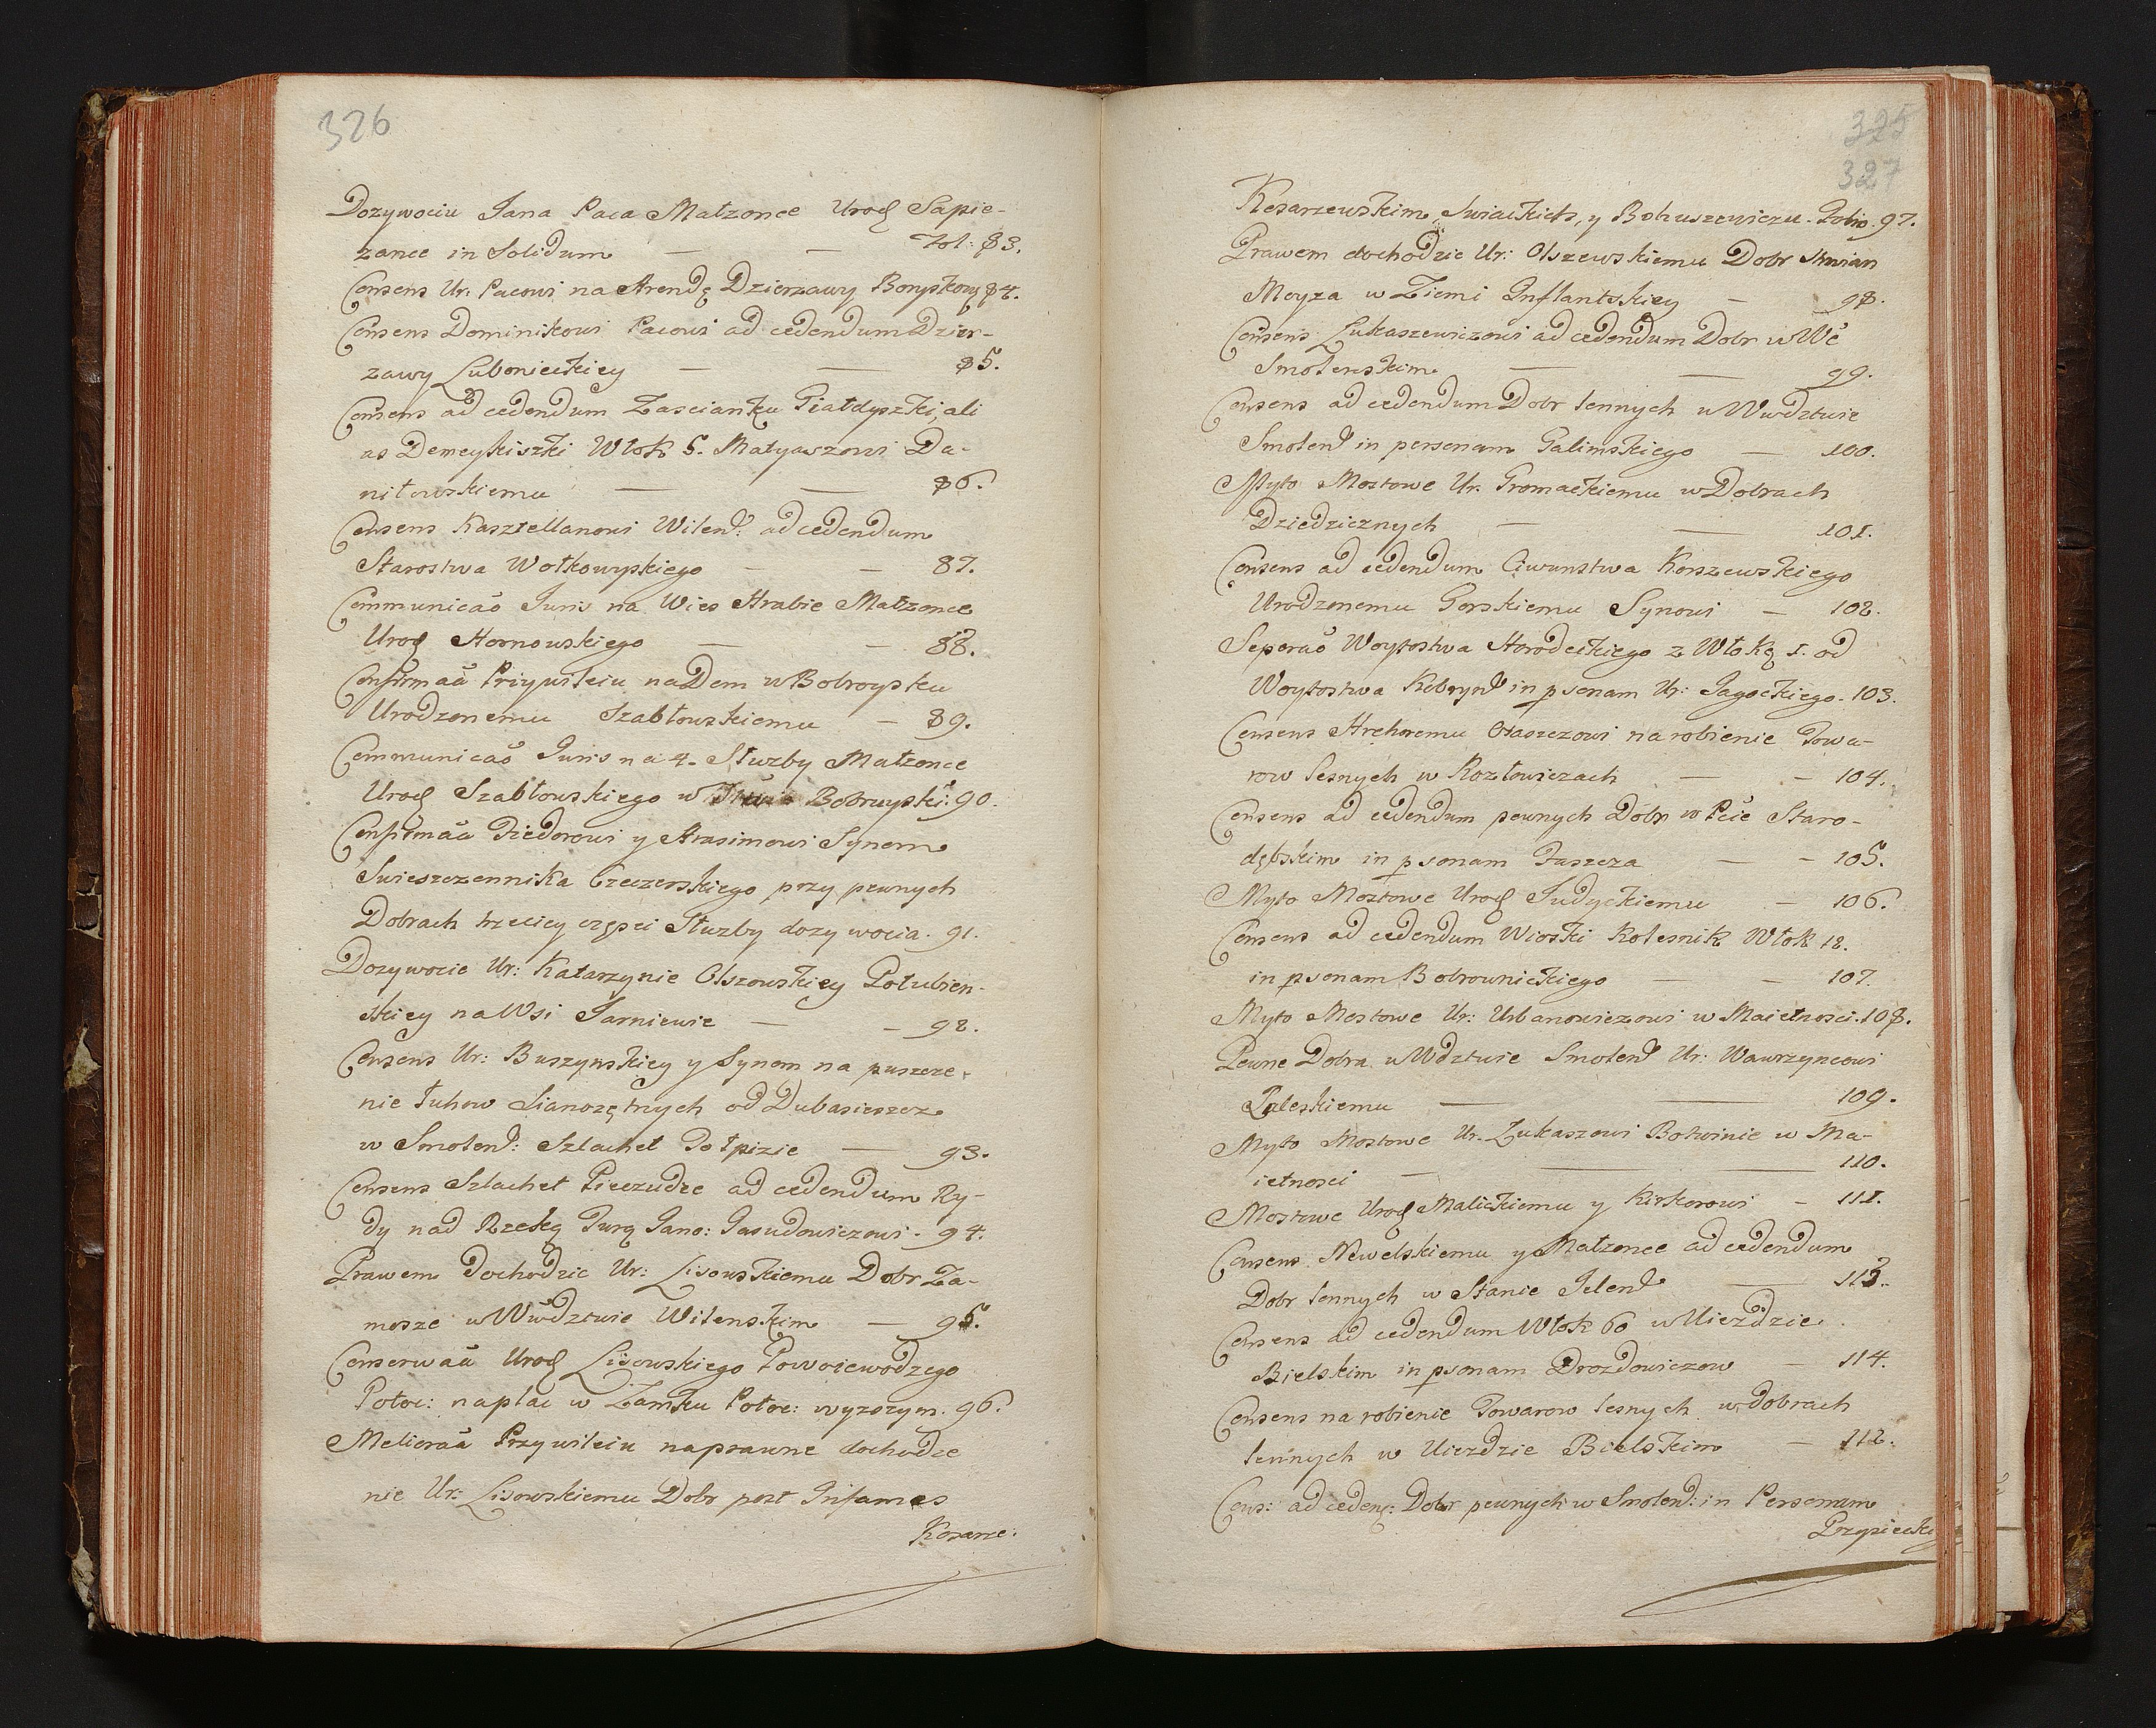 326
Dozywociu Jana Paca Małzonce Urod Sapie-
zance in Solidum — — Fol: 83.
Consens Ur: Pacowi na Arendę Dzierzawy Boryskow 84.
Consens Dominikowi Pacowi ad cedendum Dzier-
zawy Lubonieckiey — — 85.
Consens ad cedendum Zascianku Piałdyszki, ali
as Demeykiszki Włok 5. Matyaszowi Da-
niłowskiemu — — 86.
Consens Kasztellanowi Wilen: ad cedendum
Starostwa Wołkowyskiego — — 87.
Communicao Juris na Wies Hrabie Małzonce
Urod Hornowskiego — — 88.
Confirmaa Priywileiu na Dom w Bobroysku
Urodzonemu Szabłowskiemu — 89.
Communicao Juris na 4. Służby Małzonce
Urod Szabłowskiego w Bobruyski: 90.
Confirmaa Fiedorowi y Arasimowi Synom
Swieszczennika Czeczerskiego przy pewnych
Dobrach trzeciey częsci Służby dozywocia. 91.
Dozywocie Ur: Katarzynie Olszowskiey Połubien-
skiey na Wsi Jarniewie — — 92.
Consens Ur: Buszynskiey y Synom na puszcze-
nie Łuhow Sianożętnych od Dubasieszcz
w Smolen: Szlachet Połpizie — 93.
Consens Szlachet Pieczudze ad cedendum Ry-
dy nad Rzeką Turą Jano: Jasudowiczowi. 94.
Prawem dochodzic Ur: Lisowskiemu Dobr Za-
mosze w Wwdztwie Wilenskim — 95.
Conserwaa Urod Lisowskiego Powoiewodzego
Połoc: na plac w Zamku Połoc: wyzszym. 96.
Melioraa Przywileiu na prawne dochodze
nie Ur: Lisowskiemu Dobr post Infames
Kosarze:
325
327
Kosarzewskim, Swiackich, y Bohuszewiczu. Folio. 97.
Prawem dochodzic Ur: Olszewskiemu Dobr Annian
Moyza w Ziemi Inflantskiey — 98.
Consens Łukaszewiczowi ad cedendum Dobr w We
Smolenskim — — 99.
Consens ad cedendum Dobr lennych w Wwdztwie
Smolen in personam Galimskiego — 100.
Myto Mostowe Ur. Gromackiemu w Dobrach
Dziedzicznych — — 101.
Consens ad cedendum Ciwunstwa Korszewskiego
Urodzonemu Gorskiemu Synowi — 102.
Seperao Woytostwa Horodeckiego z Włoką 1. od
Woytostwa Kobryn in psonam Ur: Jagockiego. 103.
Consens Hrehoremu Ołaszczowi na robienie Towa-
row lesnych w Kozłowiczach — — 104.
Consens ad cedendum pewnych Dobr w Pcie Staro-
dębskim in psonam Juszcza — — 105.
Myto Mostowe Urod Judyckiemu — 106.
Consens ad cedendum Wioski Kolesnik Włok 12.
in psonam Bobrownickiego — — 107.
Myto Mostowe Ur: Urbanowiczowi w Maietnosci. 108.
Pewne Dobra w Wdztwie Smolen Ur: Wawrzyncowi
Zaleskiemu — — 109.
Myto Mostowe Ur. Łukaszowi Botwinie w Ma-
ietnosci — — — 110.
Mostowe Urod Malickiemu y Kirkorowi — 111.
Consens Newelskiemu y Małzonce ad cedendum
Dobr lennych w Stanie Jelen — 113.
Consens ad cedendum Włok 60 w Uiezdzie
Bielskim in psonam Drozdowiczow — 114.
Consens na robienie Towarow lesnych w dobrach
lennych w Uiezdzie Bielskim — 112.
Cons: ad ceden: Dobr pewnych w Smolen: in Personam
Przysiecki